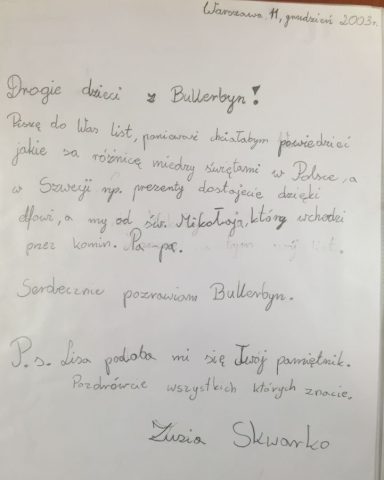 Warszawa, 11, grudzień 2003r.
Drogie dzieci z Bullerbyn!
Piszę do Was list, ponieważ chciałabym powiedzieć
jakie są różnicę miedzy świętami w Polsce, a
w Szwecji np. prezenty dostajecie dzięki
elfowi, a my od św. Mikołaja, który wchodzi
przez komin. Pa pa.
Serdecznie pozrawiam Bullerbyn.
P.s. Lisa podoba mi się Twój pamiętnik.
Pozdrówcie wszystkich których znacie.
Zuzia Skwarko